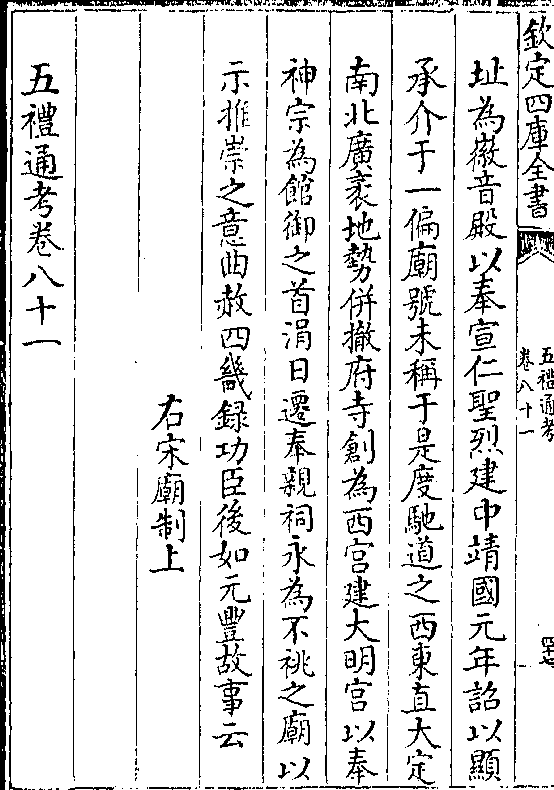 欽定四庫全書
五禮通考
卷八十一
四十七
址為徽音殿以奉宣仁聖烈建中靖國元年詔以顯
承介于一偏廟號未稱于是度馳道之西東直大定
南北廣袤地勢併撤府寺創為西宮建大明宮以奉
神宗為館御之首涓日遷奉親祠永為不祧之廟以
示推崇之意曲赦四畿録功臣後如元豐故事云
右宋廟制上
五禮通考卷八十一